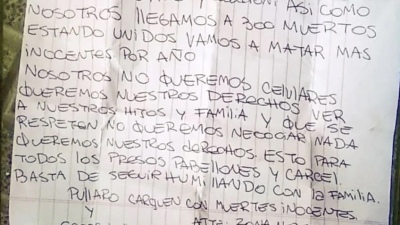 ASI COMO
NOSOTROS LLEGAMOS A 300 MUERTOS
ESTANDO UNIDOS VAMOS A MATAR MAS
INOCENTES POR AÑO
NOSOTROS NO QUEREMOS CELULARES
QUEREMOS NUESTROS DERECHOS VER
A NUESTROS HIJOS Y FAMILIA Y QUE SE
RESPETEN NO QUEREMOS NEGOCIAR NADA
QUEREMOS NUESTROS DERECHOS. ESTO PARA
TODOS LOS PRESOS PABELLONES Y CARCEL.
BASTA DE SEGUIR HUMILLANDO CON LA FAMILIA.
PULLARO CARGUEN CON MUERTES INOCENTES.
Y
ATTE: ZONA